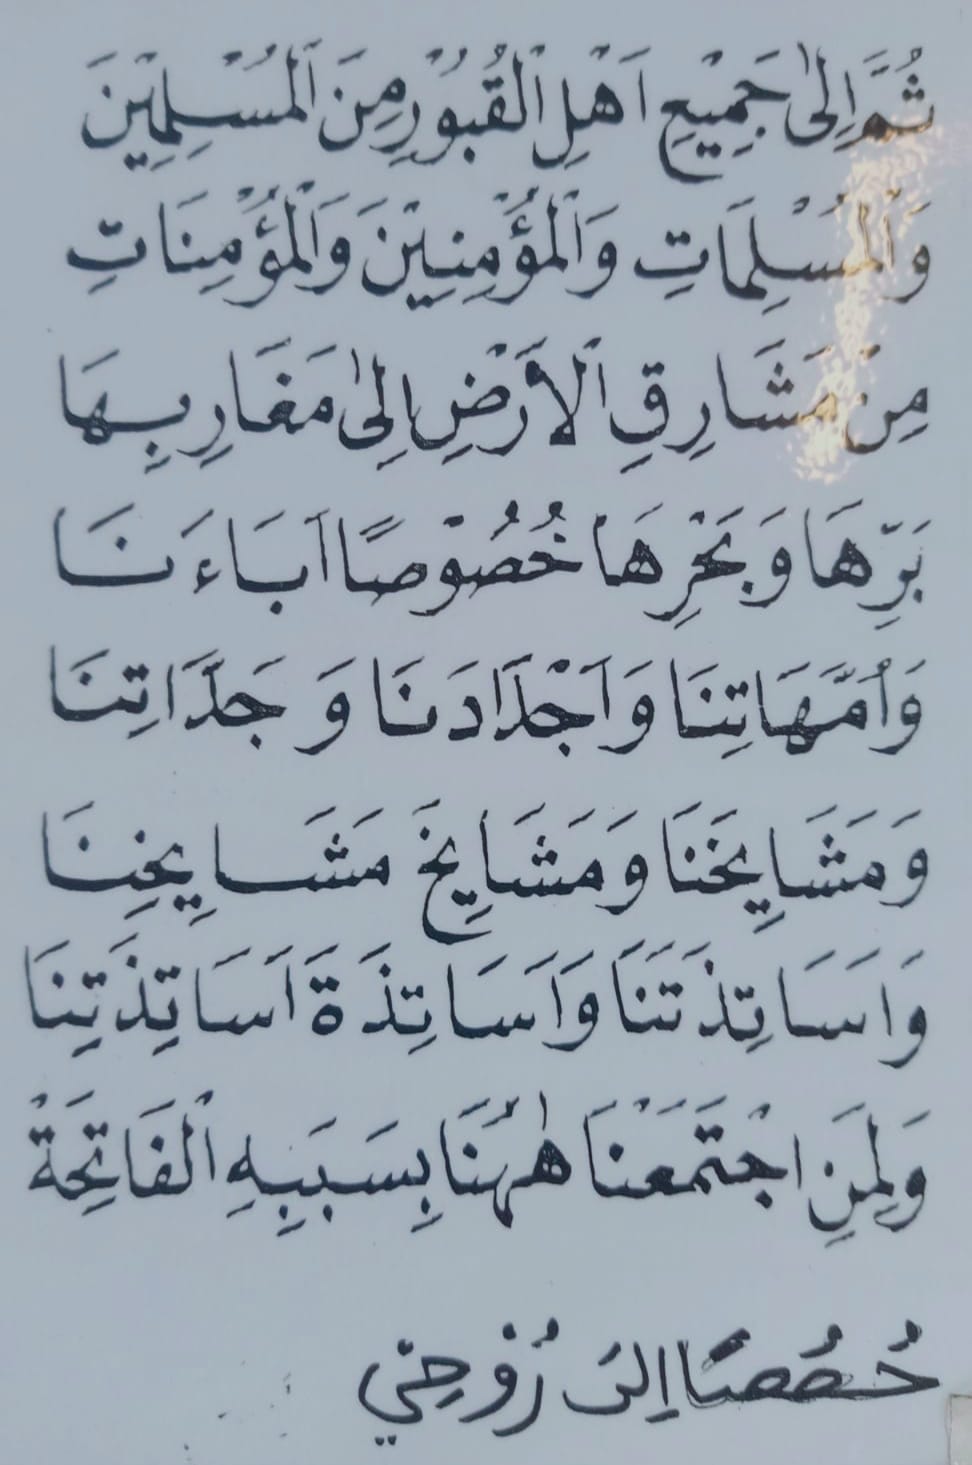 ثُمَّ اِلٰى جَمِيْعِ اَهْلِ الْقُبُوْرِ مِنَ الْمُسْلِمِيْنَ
وَالْمُسْلِمَاتِ وَالْمُؤْمِنِيْنَ وَالْمُؤْمِنَاتِ
مِنْ مَشَارِقِ الْاَرْضِ اِلٰى مَغَارِبِهَا
بَرِّهَا وَبَحْرِهَا خُصُوْصًا اٰبَاءَنَا
وَاُمَّهَاتِنَا وَاَجْدَادَنَا وَجَدَّاتِنَا
وَمَشَايِخَنَا وَمَشَايِخَ مَشَايِخِنَا
وَاَسَاتِذَتَنَا وَاَسَاتِذَةَ اَسَاتِذَتِنَا
وَلِمَنِ اجْتَمَعْنَا هٰهُنَا بِسَبَبِهِ الْفَاتِحَةْ
حُصُصًا اِلىَ رُوْحِيْ